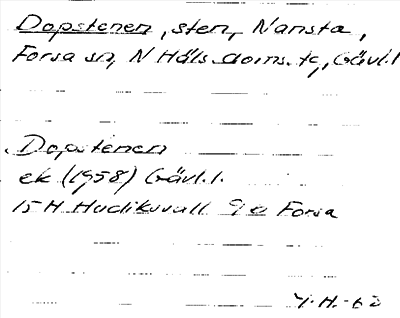 Dopstenen, sten, Nansta,
Forsa sn, N Häls. doms. tg, Gävl. l
Dopstenen
ek (1958) Gävl. l.
15 H Hudiksvall 9 e Forsa
Y. H. -62